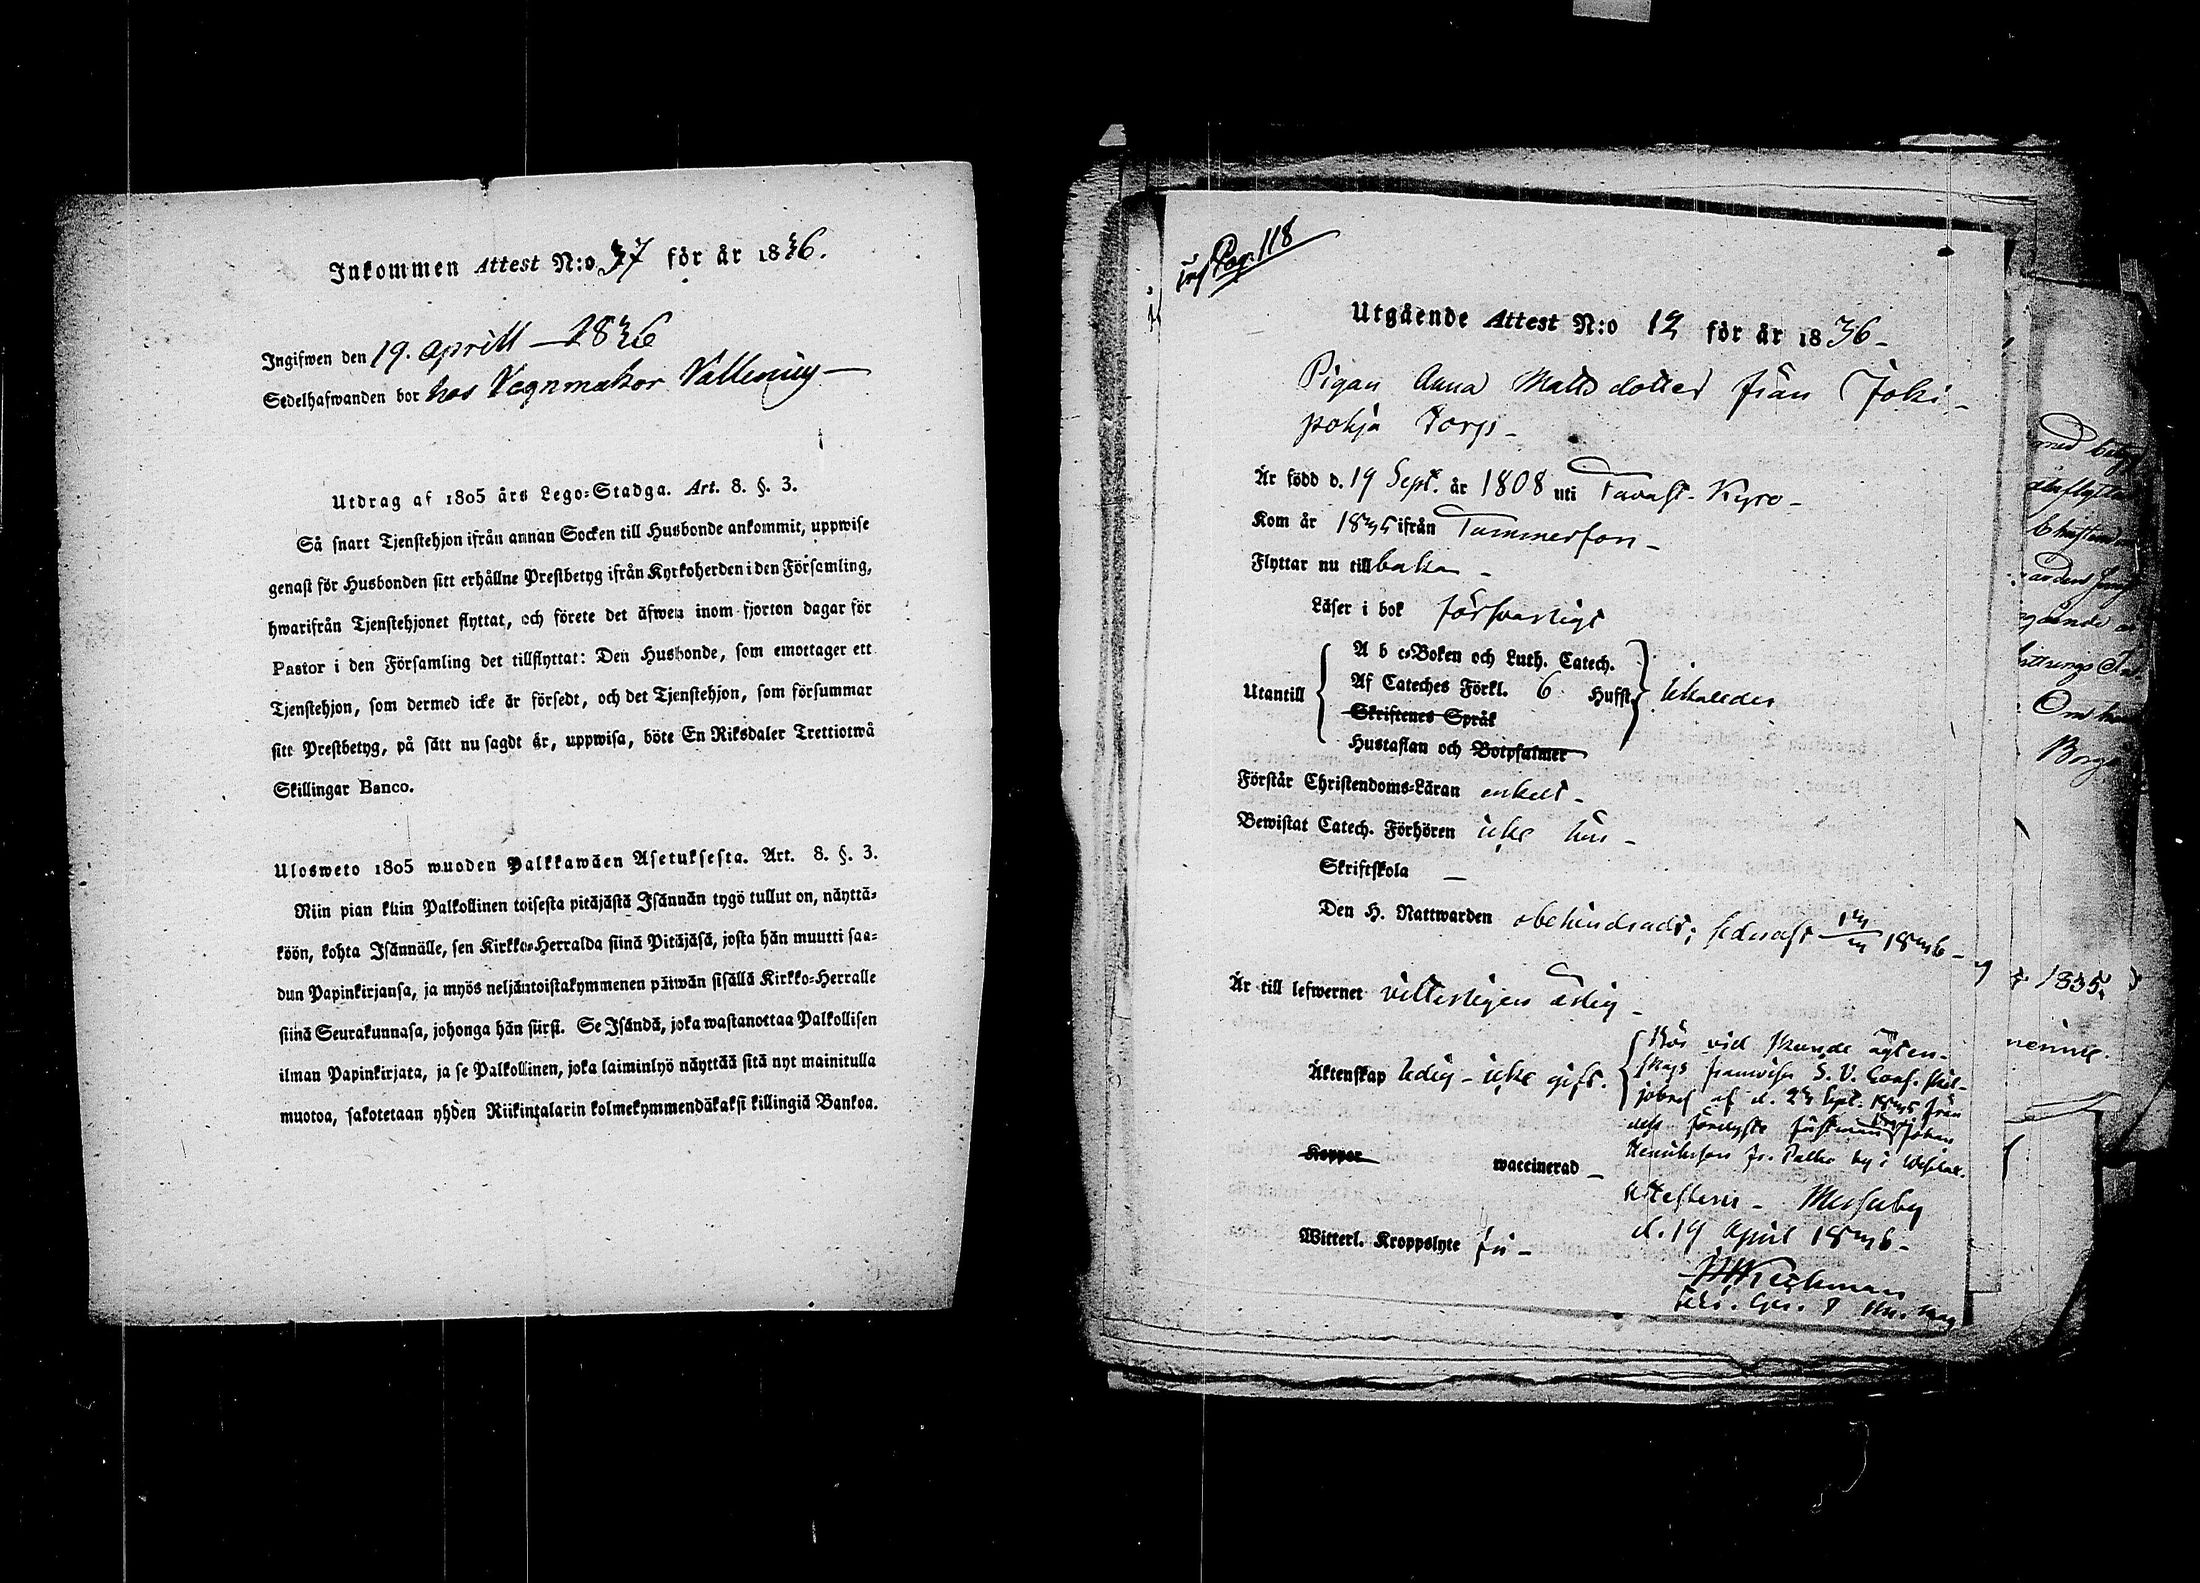 Inkommen Attest N:o 37 för år 1836.
Ingifwen den 19. aprill 1836
Sedelhafwanden bor hos Vagnmakar Vallenius
Utdrag af 1805 års Lego-Stadga. Art. 8. §. 3.
Så snart Tjenstehjon ifrån annan Socken till Husbonde ankommit, uppwise
genast för Husbonden sitt erhållne Prestbetyg ifrån Kyrkoherden i den Församling,
hwarifrån Tjenstehjonet flyttat, och förete det äfwen inom fjorton dagar för
Pastor i den Församling det tillflyttat: Den Husbonde, som emottager ett
Tjenstehjon, som dermed icke är försedt, och det Tjenstehjon, som försummar
sitt Prestbetyg, på sätt nu sagdt är, uppwisa, böte En Riksdaler Trettiotwå
Skillingar Banco.
Ulosweto 1805 wuoden Palkkawäen Asetuksesta. Art. 8. §. 3.
Niin pian kuin Palkollinen toisesta pitäjästä Isännän tygö tullut on, näyttä-
köön, kohta Isännälle, sen Kirkko-Herralda siinä Pitäjäsä, josta hän muutti saa-
dun Papinkirjansa, ja myös neljäntoistakymmenen päiwän sisällä Kirkko-Herralle
siinä Seurakunnasa, johonga hän siirsi. Se Isändä, joka wastanottaa Palkollisen
ilman Papinkirjata, ja se Palkollinen, joka laiminlyö näyttää sitä nyt mainitulla
muotoa, sakotetaan yhden Riikintalarin kolmekymmendäkaksi killingiä Bankoa.
Pag. 118
Utgående Attest N:o 12 för år 1836
Pigan Anna Mattsdotter från Joki-
pohja Torp
Är född d. 19 Sept. år 1808 uti Tavast-Kyro
Kom år 1835 ifrån Tammerfors
Flyttar nu tillbaka
Läser i bok försvarligt
A b c-Boken och Luth. Catech.
Utantill Af Cateches Förkl. 6 Hufst. likaledes
Skriftenes Språk
Hustaflan och Botpsalmer
Förstår Christendoms-Läran enkelt
Bewistat Catech. Förhören icke här
Skriftskola
Den H. Nattwarden obehindradt; sednast 1836
Är till lefwernet vitterligen ärlig
Äktenskap ledig - icke gift.
Bör vid skeende ägten-
skap framvisa S. V. Cons. skil-
jobref af d. 23 Sept. 1835 från
dess förlyste fästman Johan
Henriksson fr. by i
Koppor waccinerad
Attesterar Messuby
d. 19 April 1836
Witterl. Kroppslyte fri
1835
Om
Borg